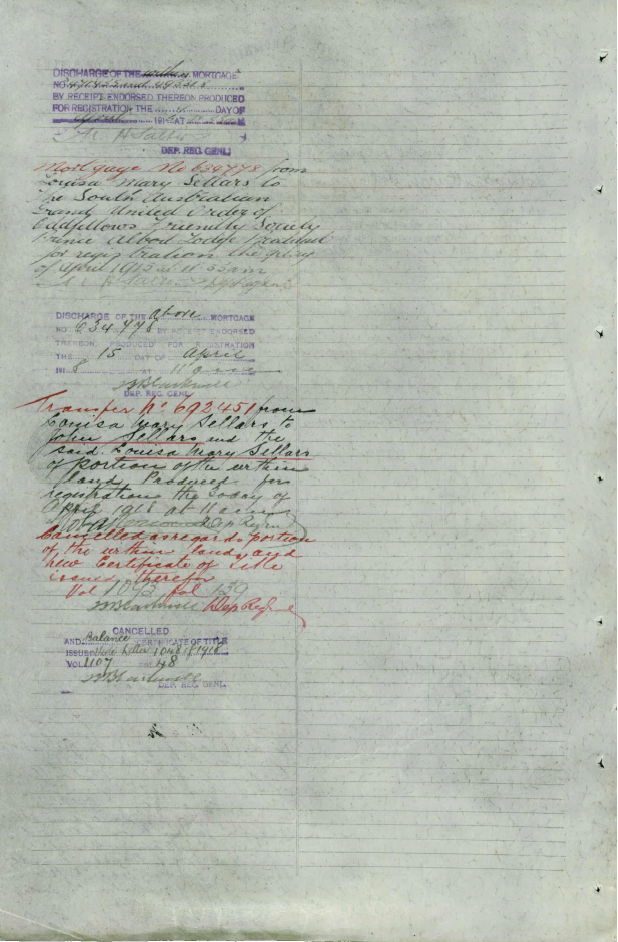 DISCHARGE OF THE within MORTGAGE
NO
BY RECEIPT ENDORSED THEREON PRODUCED
FOR REGISTRATION THE DAY OF
191 AT
DEP. REG. GENL.
Mortgage No 634778 from
Louisa Mary Sellars to
The South Australian
Grand United Order of
Oddfellows Friendly Society
Prince Albert Lodge Produced
for registration the
of April 1915 at 11.55 am
DISCHARGE OF THE above MORTGAGE
NO 634778 BY RECEIPT ENDORSED
THEREON PRODUCED FOR REGISTRATION
THE 15 DAY OF April
1918 AT 11 am
DEP. REG. GENL.
Transfer No 692451 from
Louisa Mary Sellars to
John Sellars and the
said Louisa Mary Sellars
of portion of the within
land Produced for
registration the day of
April 1918 at 11 am
Dep Reg Genl
Cancelled as regards portion
of the within land and
New Certificate of Title
issued therefor
Vol 1092 fol 159
Dep Reg Genl
CANCELLED
AND Balance CERTIFICATE OF TITLE
ISSUED Vide Letter 1048/1918
VOL 1107 FOL 48
DEP. REG. GENL.